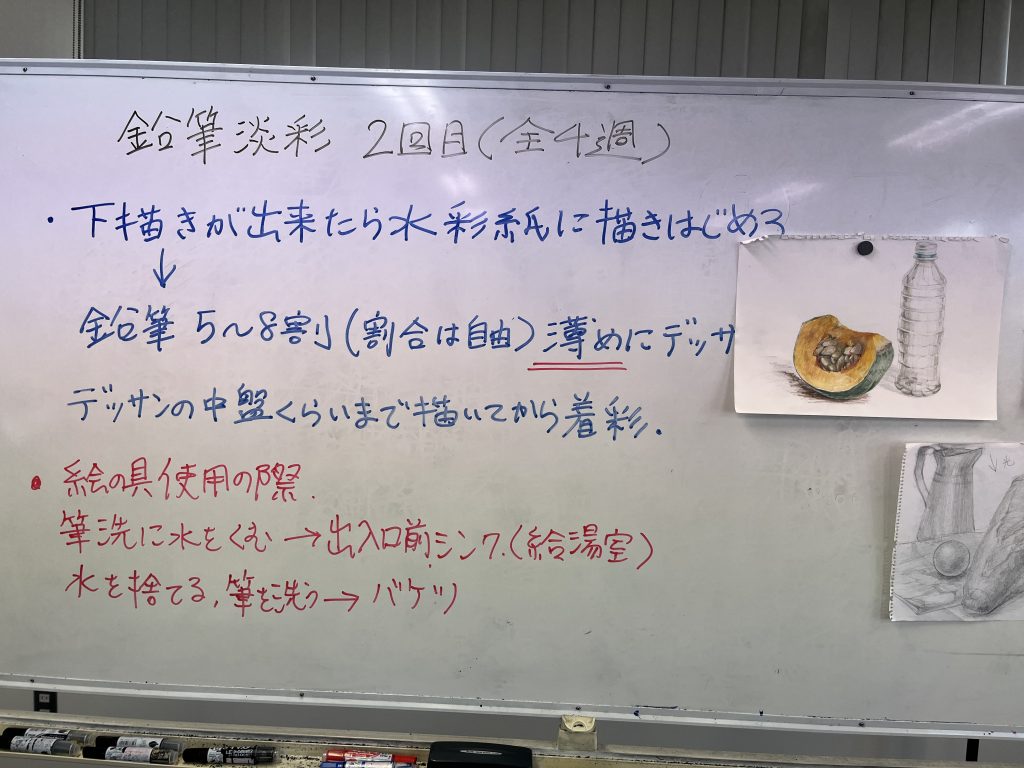 鉛筆淡彩 2回目(全4週)
・下描きが出来たら水彩紙に描きはじめる
↓
鉛筆 5〜8割(割合は自由)薄めにデッサ
デッサンの中盤くらいまで描いてから着彩.
• 絵の具使用の際.
筆洗に水をくむ → 出入口前シンク.(給湯室)
水を捨てる, 筆を洗う → バケツ
↓光